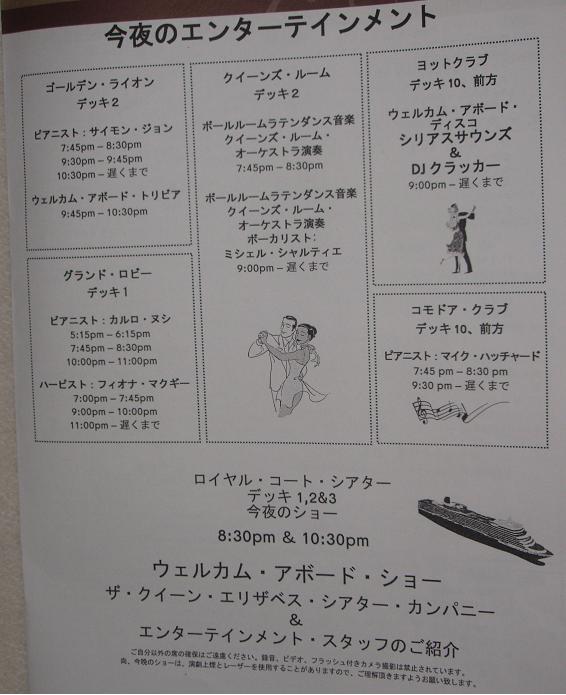 今夜のエンターテインメント
ゴールデン・ライオン
デッキ2
ピアニスト：サイモン・ジョン
7:45pm – 8:30pm
9:30pm – 9:45pm
10:30pm – 遅くまで
ウェルカム・アボード・トリビア
9:45pm – 10:30pm
グランド・ロビー
デッキ1
ピアニスト：カルロ・ヌシ
5:15pm – 6:15pm
7:45pm – 8:30pm
10:00pm – 11:00pm
ハーピスト：フィオナ・マクギー
7:00pm – 7:45pm
9:00pm – 10:00pm
11:00pm – 遅くまで
クイーンズ・ルーム
デッキ2
ボールルームラテンダンス音楽
クイーンズ・ルーム・
オーケストラ演奏
7:45pm – 8:30pm
ボールルームラテンダンス音楽
クイーンズ・ルーム・
オーケストラ演奏
ボーカリスト：
ミシェル・シャルティエ
9:00pm – 遅くまで
ヨットクラブ
デッキ10、前方
ウェルカム・アボード・
ディスコ
シリアスサウンズ
&
DJ クラッカー
9:00pm – 遅くまで
コモドア・クラブ
デッキ10、前方
ピアニスト：マイク・ハッチャード
7:45 pm – 8:30 pm
9:30 pm – 遅くまで
ロイヤル・コート・シアター
デッキ 1,2&3
今夜のショー
8:30pm & 10:30pm
ウェルカム・アボード・ショー
ザ・クイーン・エリザベス・シアター・カンパニー
&
エンターテインメント・スタッフのご紹介
ご自分以外の席の確保はご遠慮ください。録音、ビデオ、フラッシュ付きカメラ撮影は禁止されています。
尚、今晩のショーは、演劇上煙とレーザーを使用することがありますので、ご理解頂きますようお願い致します。